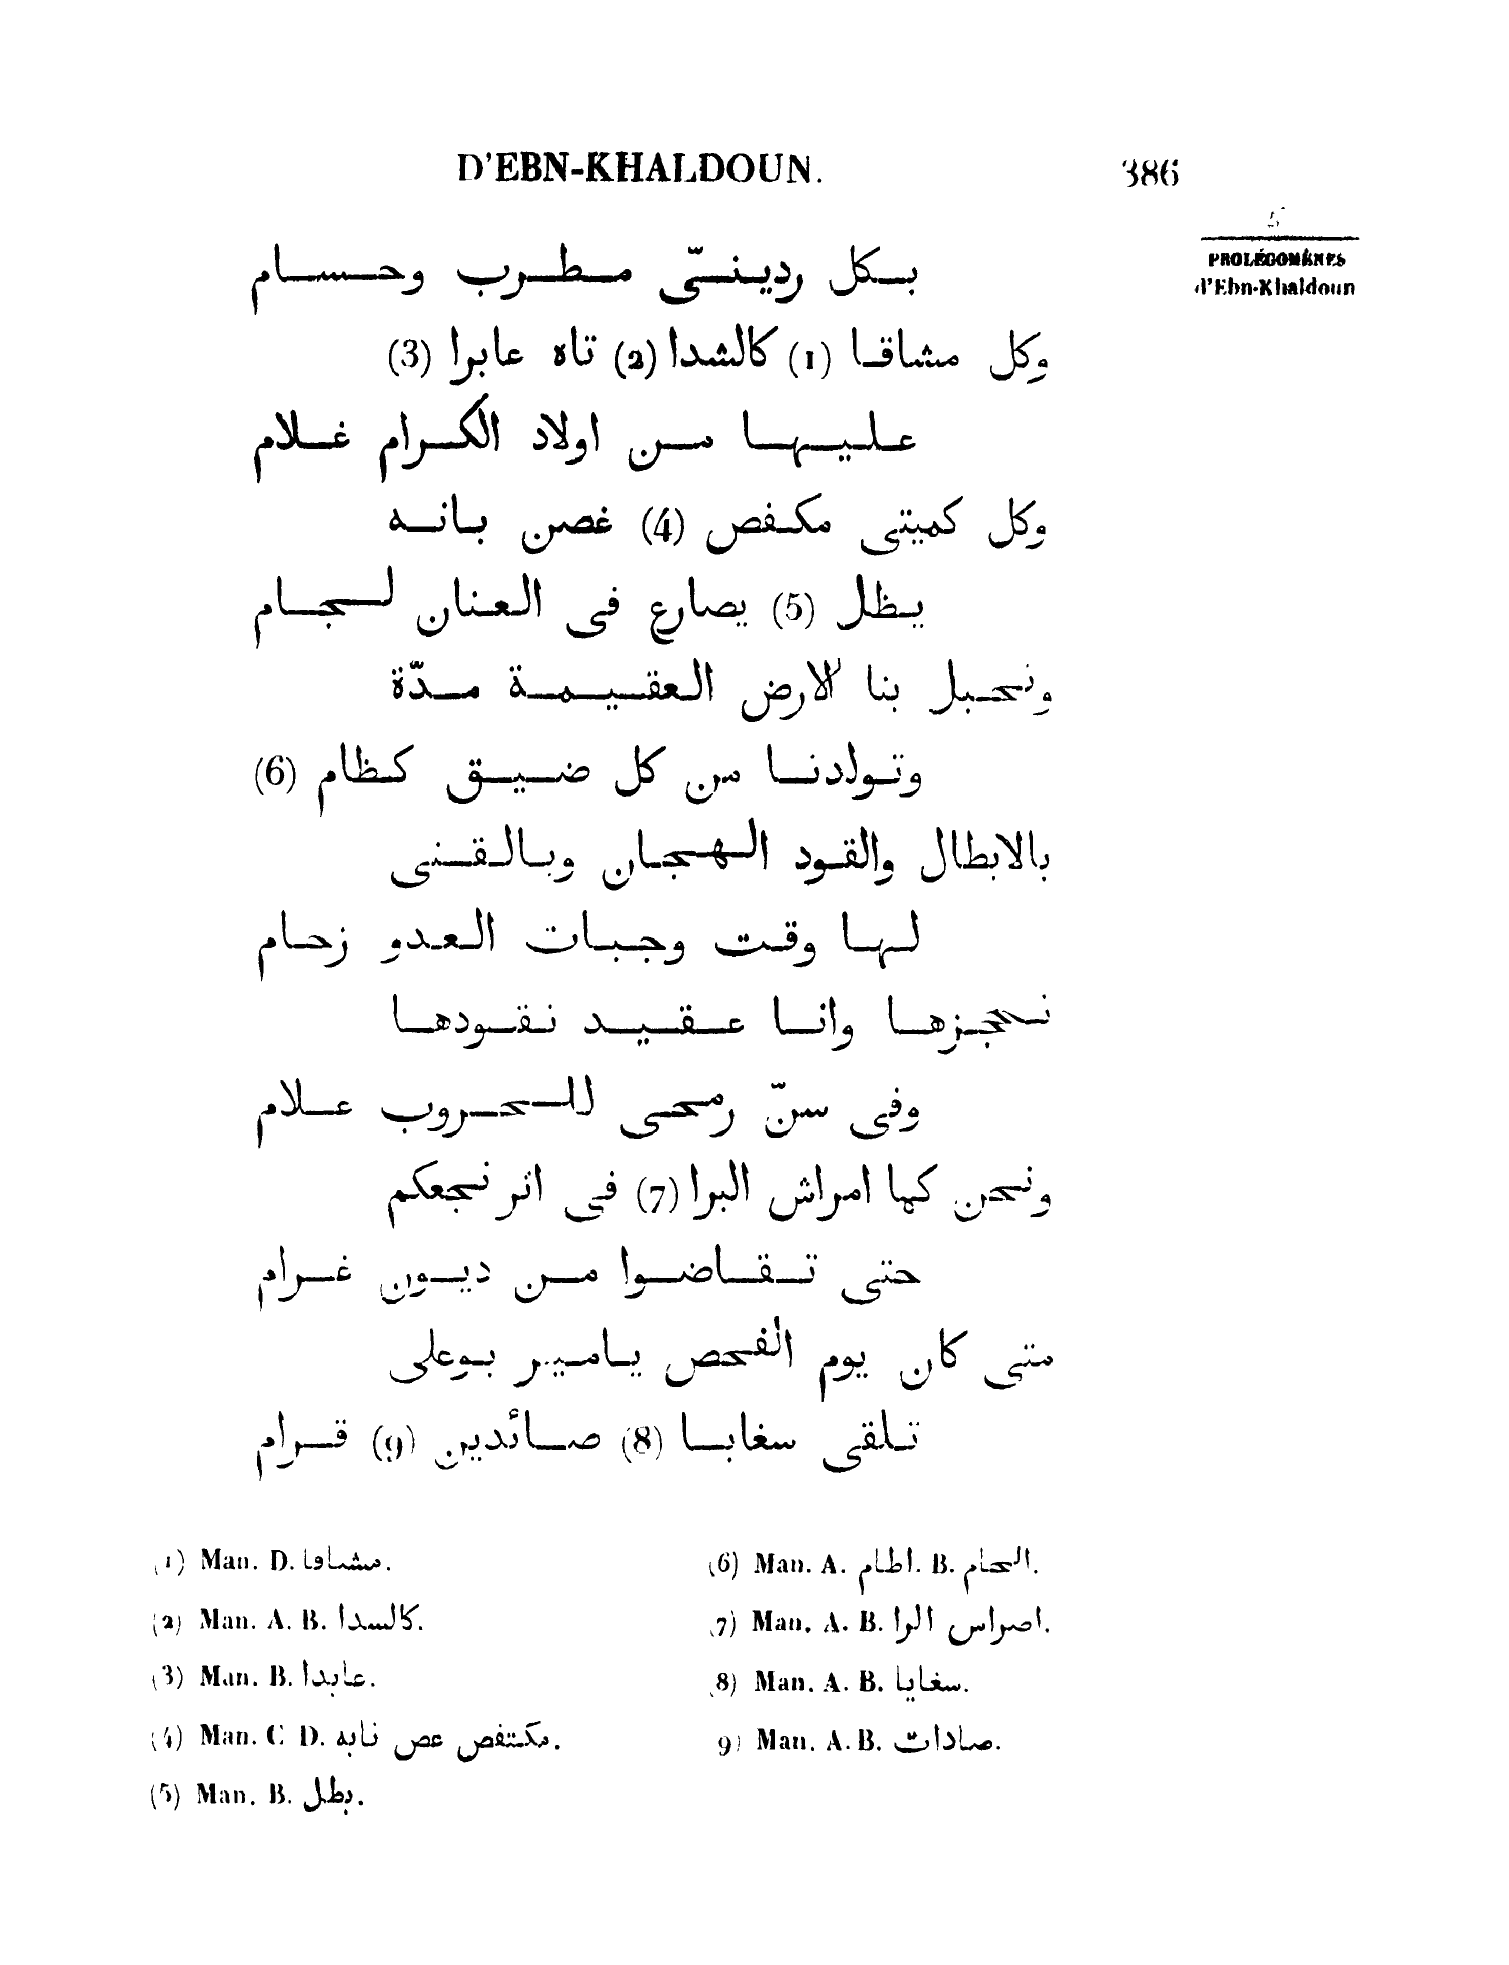 D'EBN-KHALDOUN.
386
PROLÉGOMÈNES
d'Ebn-Khaldoun
بكل ردينىّ مطرب وحسام
وكل مشاقا (1) كالشدا (2) تاه عابرا (3)
عليها من اولاد الكرام غلام
وكل كميتى مكفص (4) غصن بانه
يظل (5) يصارع فى العنان لجام
ونحبل بنا الارض العقيمة مدّة
وتولدنا من كل ضيق كظام (6)
بالابطال والقود الهجان وبالقنى
لها وقت وجبات العدو زحام
نحجزها وانا عقيد نقودها
وفى سنّ رمحى للحروب علام
ونحن كما امراش البرا (7) فى اثر نجعكم
حتى تقاضوا من ديون غرام
متى كان يوم الفحص يامير بوعلى
تلقى سغابا (8) صائدين (9) قرام
(1) Man. D. مشافا.
(2) Man. A. B. كالسدا.
(3) Man. B. عابدا.
(4) Man. C D. مكتفص عص نابه.
(5) Man. B. بطل.
(6) Man. A. اطام. B. الحام.
(7) Man. A. B. اصراس الرا.
(8) Man. A. B. سغايا.
9) Man. A. B. صادات.